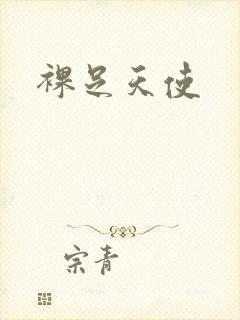 裸足天使
宗青